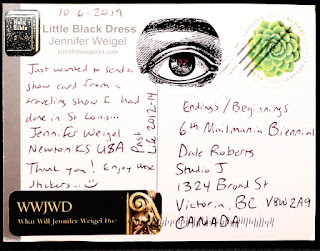 10-6-2019
HOLY BIBLE
Little Black Dress
Jennifer Weigel
jenniferweigelart.com
Just wanted to send a
show card from a
traveling show I had
done in St Louis...
Jennifer Weigel
Newton KS USA
Thank you! Enjoy these
stickers...
Post
Lib 2012-14
WWJWD
What Will Jennifer Weigel Do?
Endings/Beginnings
6th Mailmania Biennial
Dale Roberts
Studio J
1324 Broad St
Victoria, BC V8W2A9
CANADA